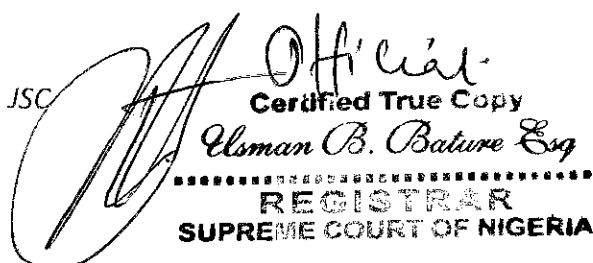 Official
JSC
Certified True Copy
Usman B. Bature Esq
REGISTRAR
SUPREME COURT OF NIGERIA